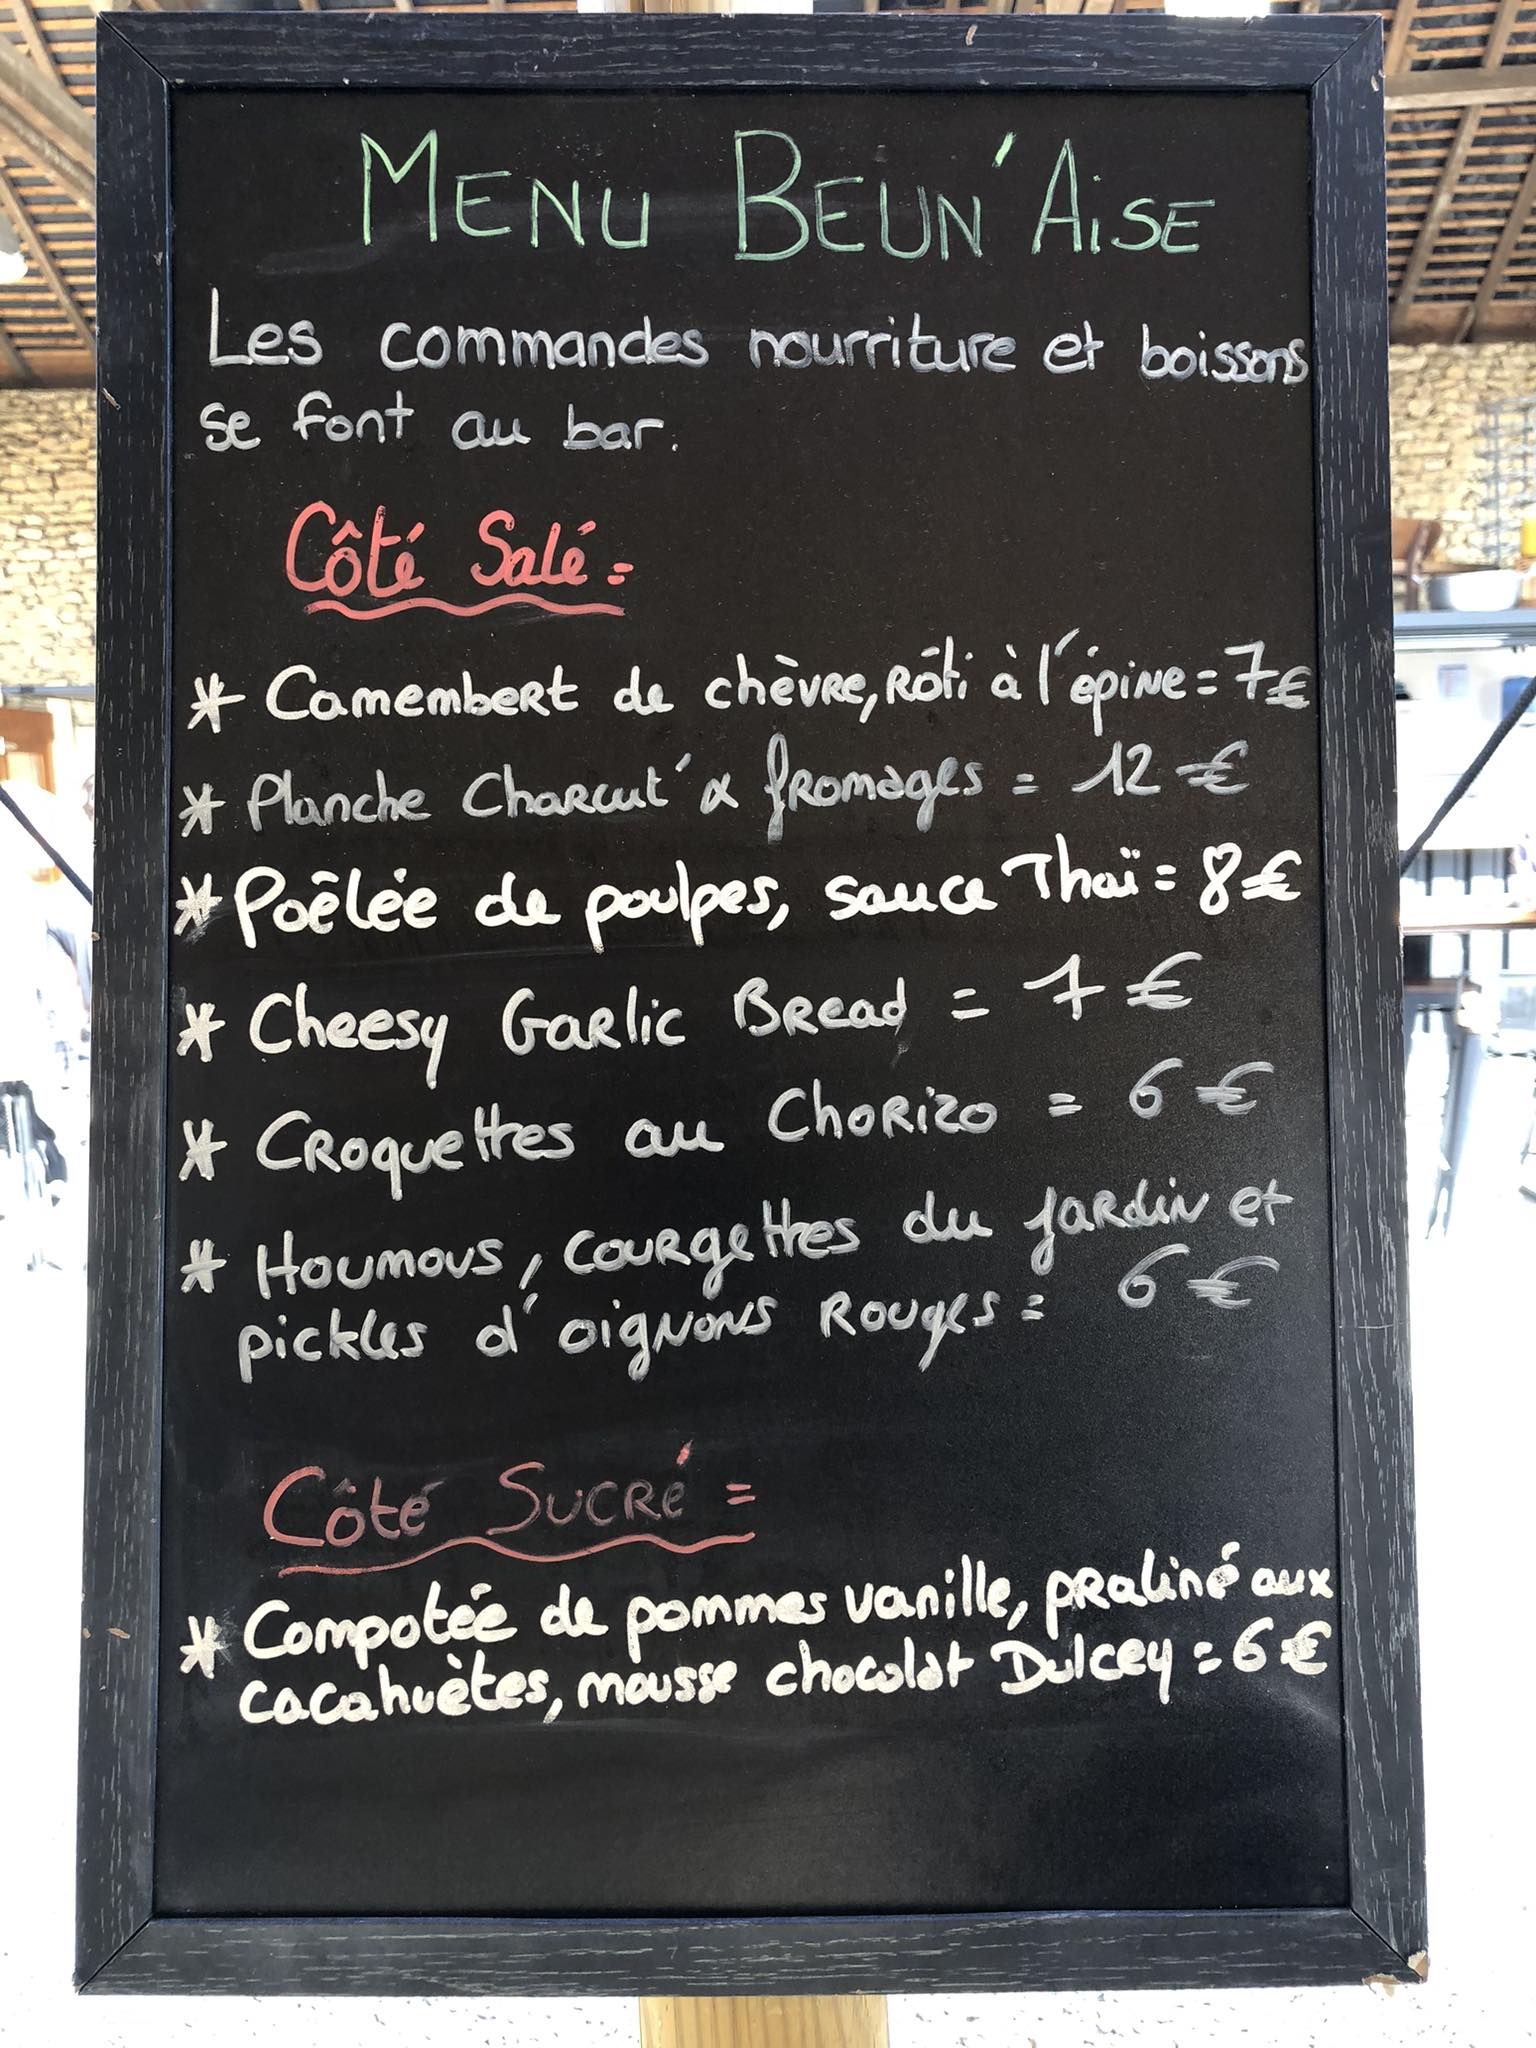 MENU BEUN'AISE
Les commandes nourriture et boissons
se font au bar.
Côté Salé =
* Camembert de chèvre, Rôti à l'épine = 7€
* Planche Charcut' & fromages = 12 €
* Poêlée de poulpes, sauce Thaï = 8€
* Cheesy Garlic Bread = 7 €
* Croquettes au Chorizo = 6 €
* Houmous, courgettes du jardin et
pickles d'oignons Rouges = 6 €
Côté Sucré =
* Compotée de pommes vanille, praliné aux
cacahuètes, mousse chocolat Dulcey = 6 €